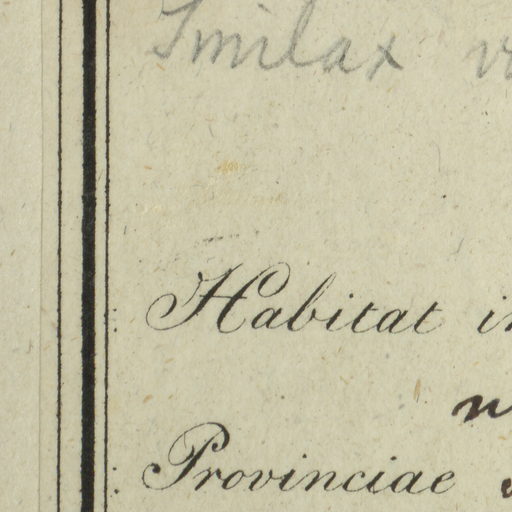 Smilax
Habitat in
Provinciae